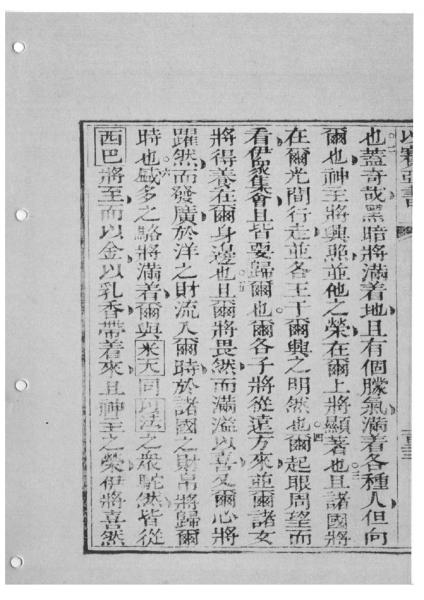 以賽亞書
也二蓋奇哉黑暗將滿着地且有個朦氣滿着各種人但向
爾也神主將興起並他之榮在爾上將顯著也三且諸國將
在爾光間行走並各王于爾興之明然也四爾起眼周望而
看伊眾集會且皆要歸爾也爾各子將從遠方來並爾諸女
將得養在爾身邊也五且爾將畏然而滿溢以喜及爾心將
躍然而發廣於洋之財流入爾時於諸國之財帛將歸爾
時也六盛多之駱將滿着爾與米天同以法之眾駝然皆從
西巴將至而以金以乳香帶着來且神主之榮伊將喜然